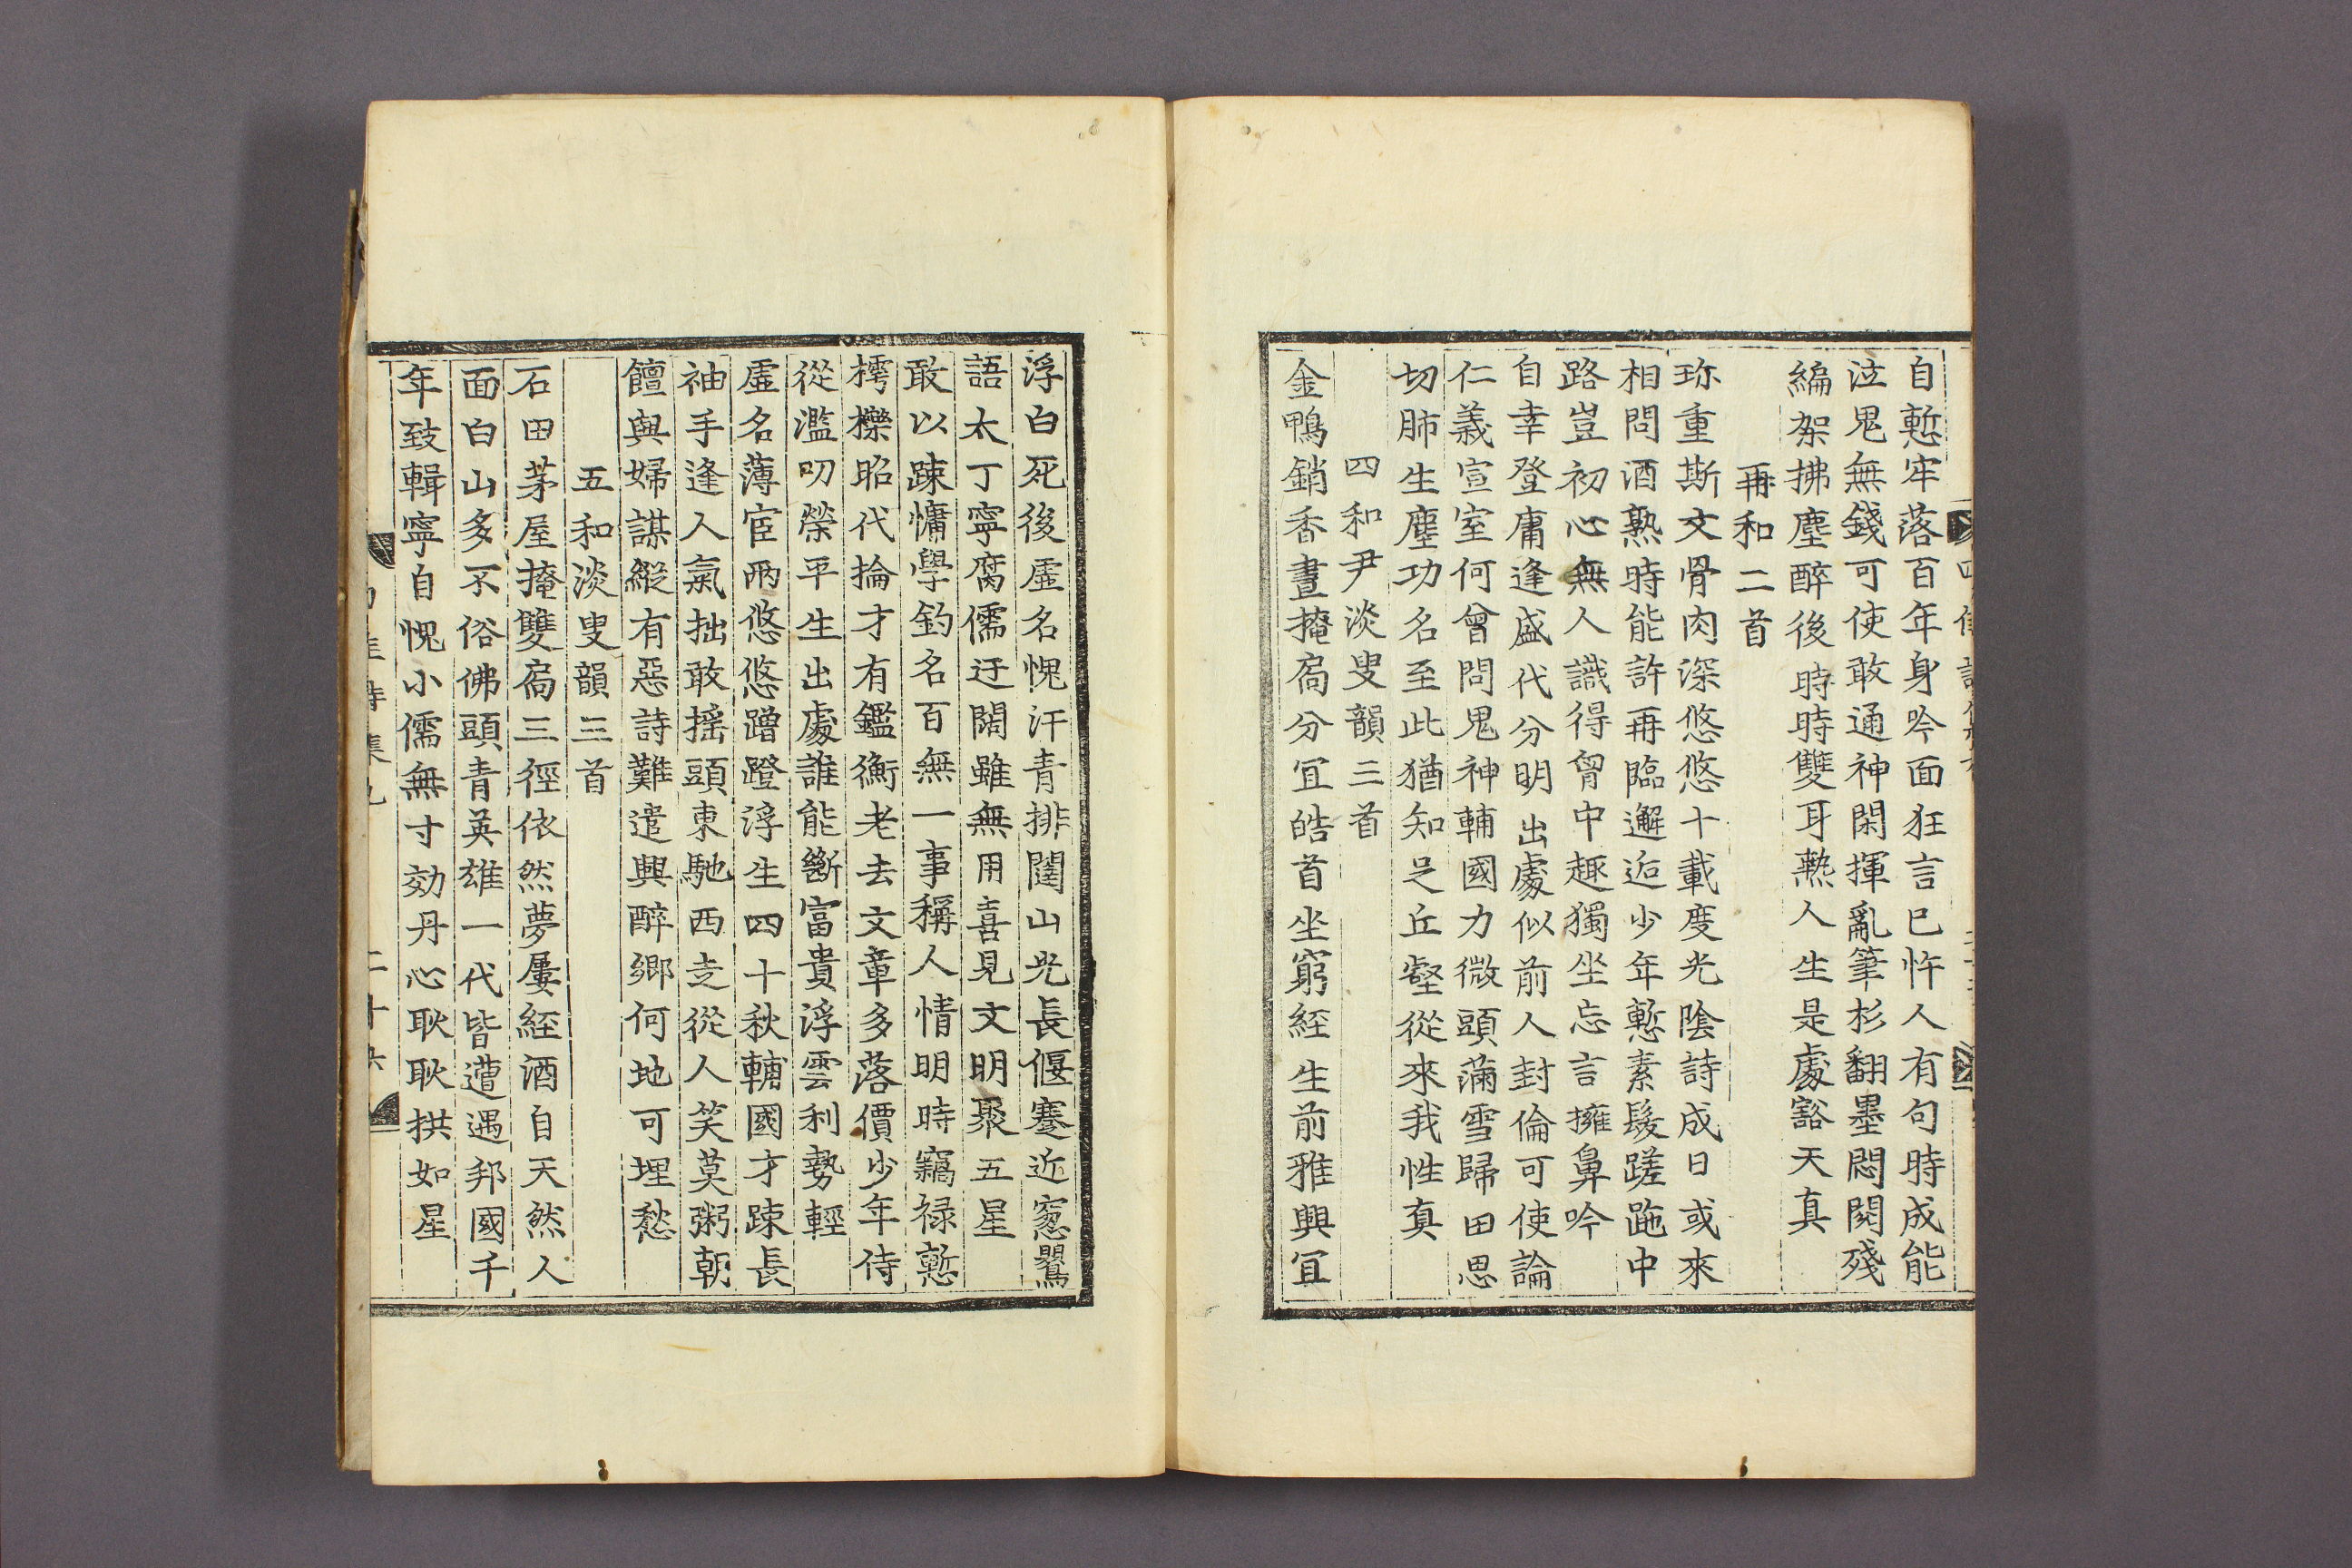 自慙牢落百年身吟面狂言已忤人有句時成能
泣鬼無錢可使敢通神閑揮亂筆杉翻墨悶閱殘
編架拂塵醉後時時雙耳熱人生是處豁天真
再和二首
珎重斯文骨肉深悠悠十載度光陰詩成日或來
相問酒熟時能許再臨邂逅少年慙素髮蹉跎中
路豈初心無人識得胷中趣獨坐忘言擁鼻吟
自幸登庸逢盛代分明出處似前人封倫可使論
仁義宣室何曾問鬼神輔國力微頭滿雪歸田思
切肺生塵功名至此猶知足丘壑從來我性真
四和尹淡叟韻三首
金鴨銷香晝掩扃分冝皓首坐窮経生前雅興冝
浮白死後虛名愧汗青排闥山光長偃蹇近窓鸎
語太丁寧腐儒迂闊雖無用喜見文明聚五星
敢以踈慵學釣名百無一事稱人情明時竊祿慙
樗櫟昭代掄才有鑑衡老去文章多落價少年侍
從濫叨榮平生出處誰能斷富貴浮雲利勢輕
虛名薄宦兩悠悠蹭蹬浮生四十秋輔國才踈長
袖手逢人氣拙敢搖頭東馳西走從人笑莫粥朝
饘與婦謀縱有惡詩難遣興醉鄉何地可埋愁
五和淡叟韻三首
石田茅屋掩雙扃三徑依然夢屢経酒自天然人
面白山多不俗佛頭青英雄一代皆遭遇邦國千
年致輯寧自愧小儒無寸効丹心耿耿拱如星